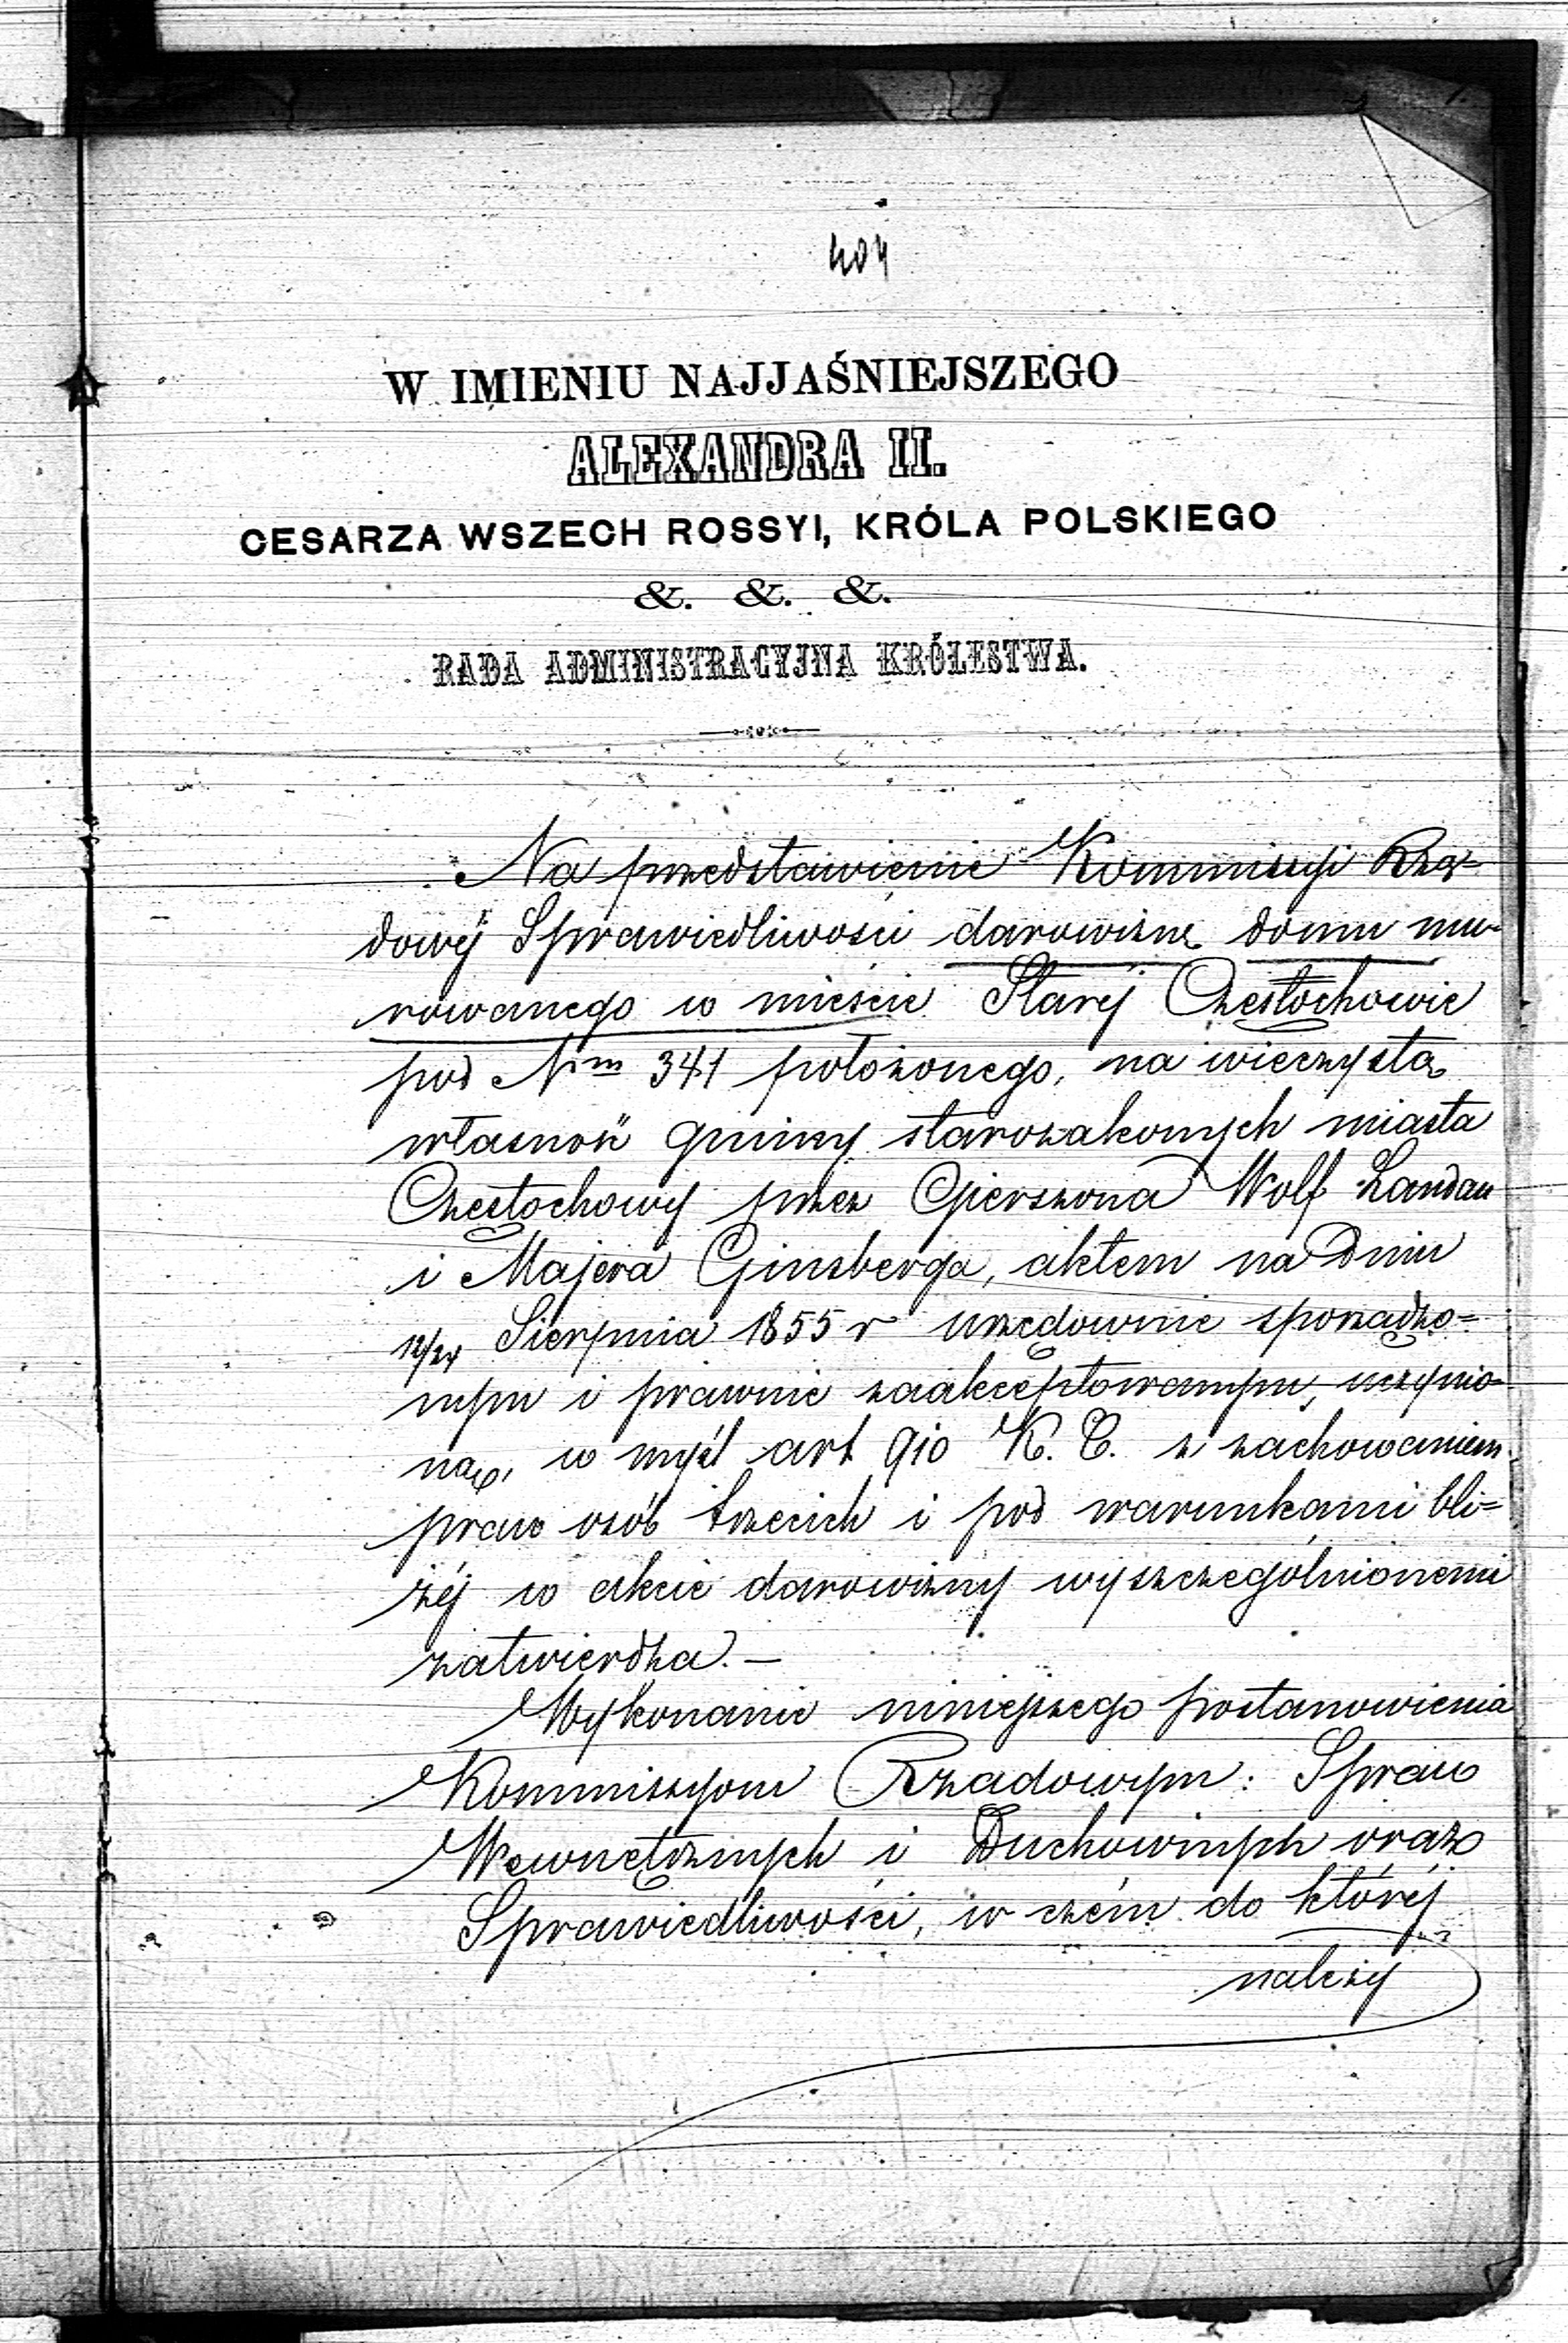 404
W IMIENIU NAJJAŚNIEJSZEGO
ALEXANDRA II.
CESARZA WSZECH ROSSYI, KRÓLA POLSKIEGO
&. &. &.
RADA ADMINISTRACYJNA KRÓLESTWA.
Na przedstawienie Kommissyi Rzą-
dowéj Sprawiedliwości darowiznę domu mu-
rowanego w mieście Staréj Częstochowie
pod Nrm 341 położonego, na wieczystą
własność gminy starozakonnych miasta
Częstochowy przez Gierszona Wolf Landau
i Majera Ginsberga, aktem na dniu
12/24 Sierpnia 1855 r urzędownie sporządzo=
nym i prawnie zaakceptowanym, uczynio=
ną, w myśl art 910 K. C. z zachowaniem
praw osób trzecich i pod warunkami bli=
żéj w akcie darowizny wyszczególnionemi
zatwierdza. —
Wykonanie niniejszego postanowienia
Kommissyom Rządowym: Spraw
Wewnętrznych i Duchownych oraz
Sprawiedliwości, w czém do któréj
należy